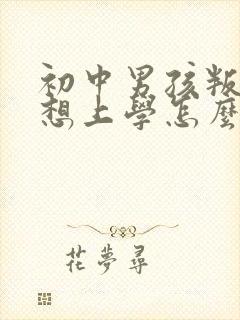 初中男孩叛
想上學怎麼
花夢尋